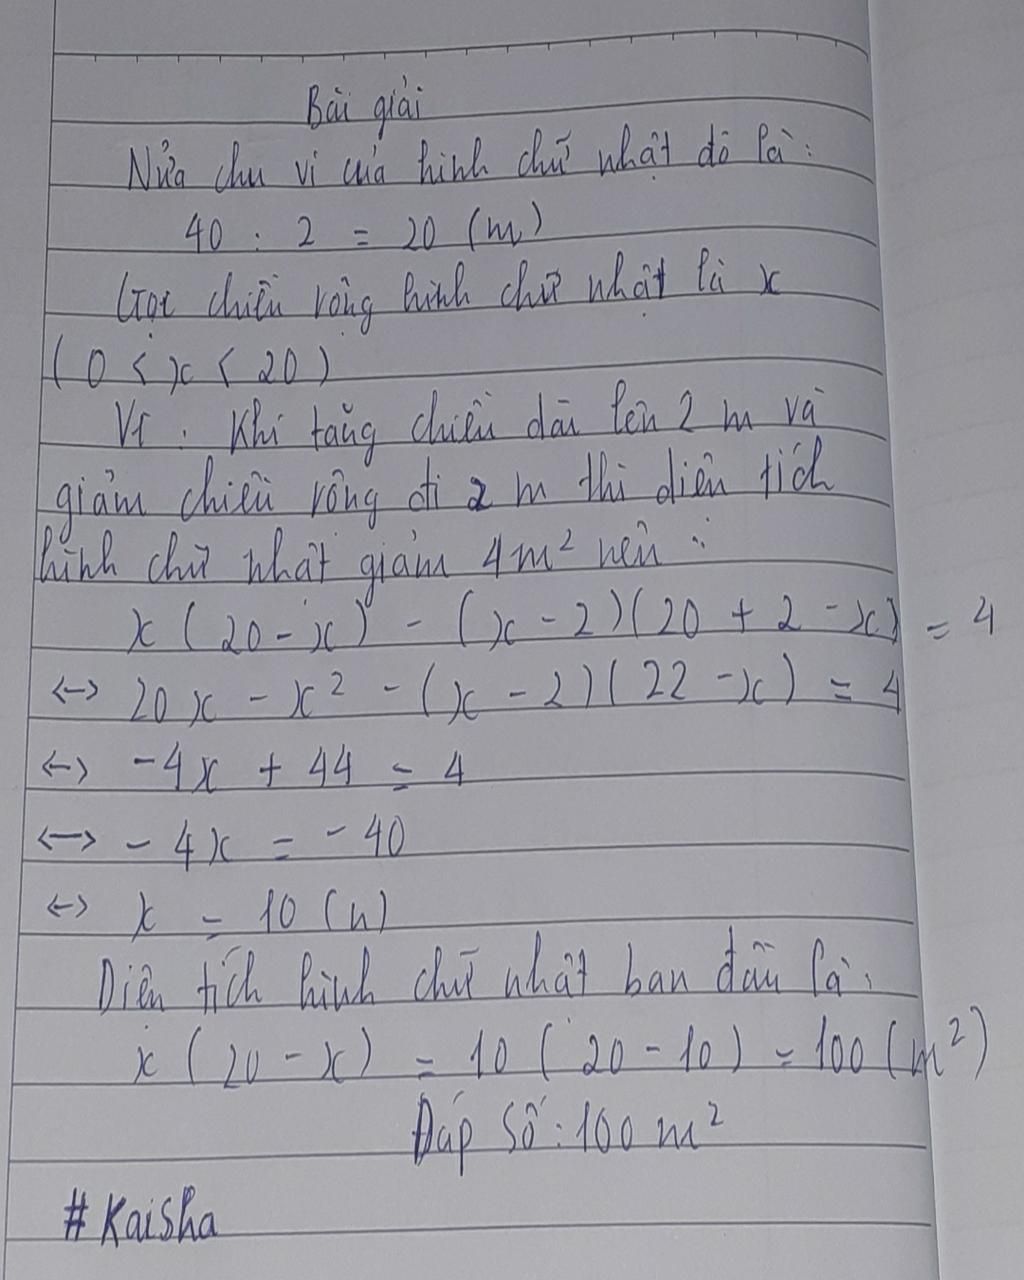 Bài giải
Nửa chu vi của hình chữ nhật đó là:
40 : 2 = 20 (m)
Gọi chiều rộng hình chữ nhật là x
(0 < x < 20)
Vì : Khi tăng chiều dài lên 2 m và
giảm chiều rộng đi 2 m thì diện tích
hình chữ nhật giảm 4m² nên :
x (20 - x) - (x - 2)(20 + 2 - x) = 4
<-> 20x - x² - (x - 2)(22 - x) = 4
<-> -4x + 44 = 4
<-> - 4x = - 40
<-> x = 10 (m)
Diện tích hình chữ nhật ban đầu là:
x (20 - x) = 10 (20 - 10) = 100 (m²)
Đáp số: 100 m²
# Kaisha